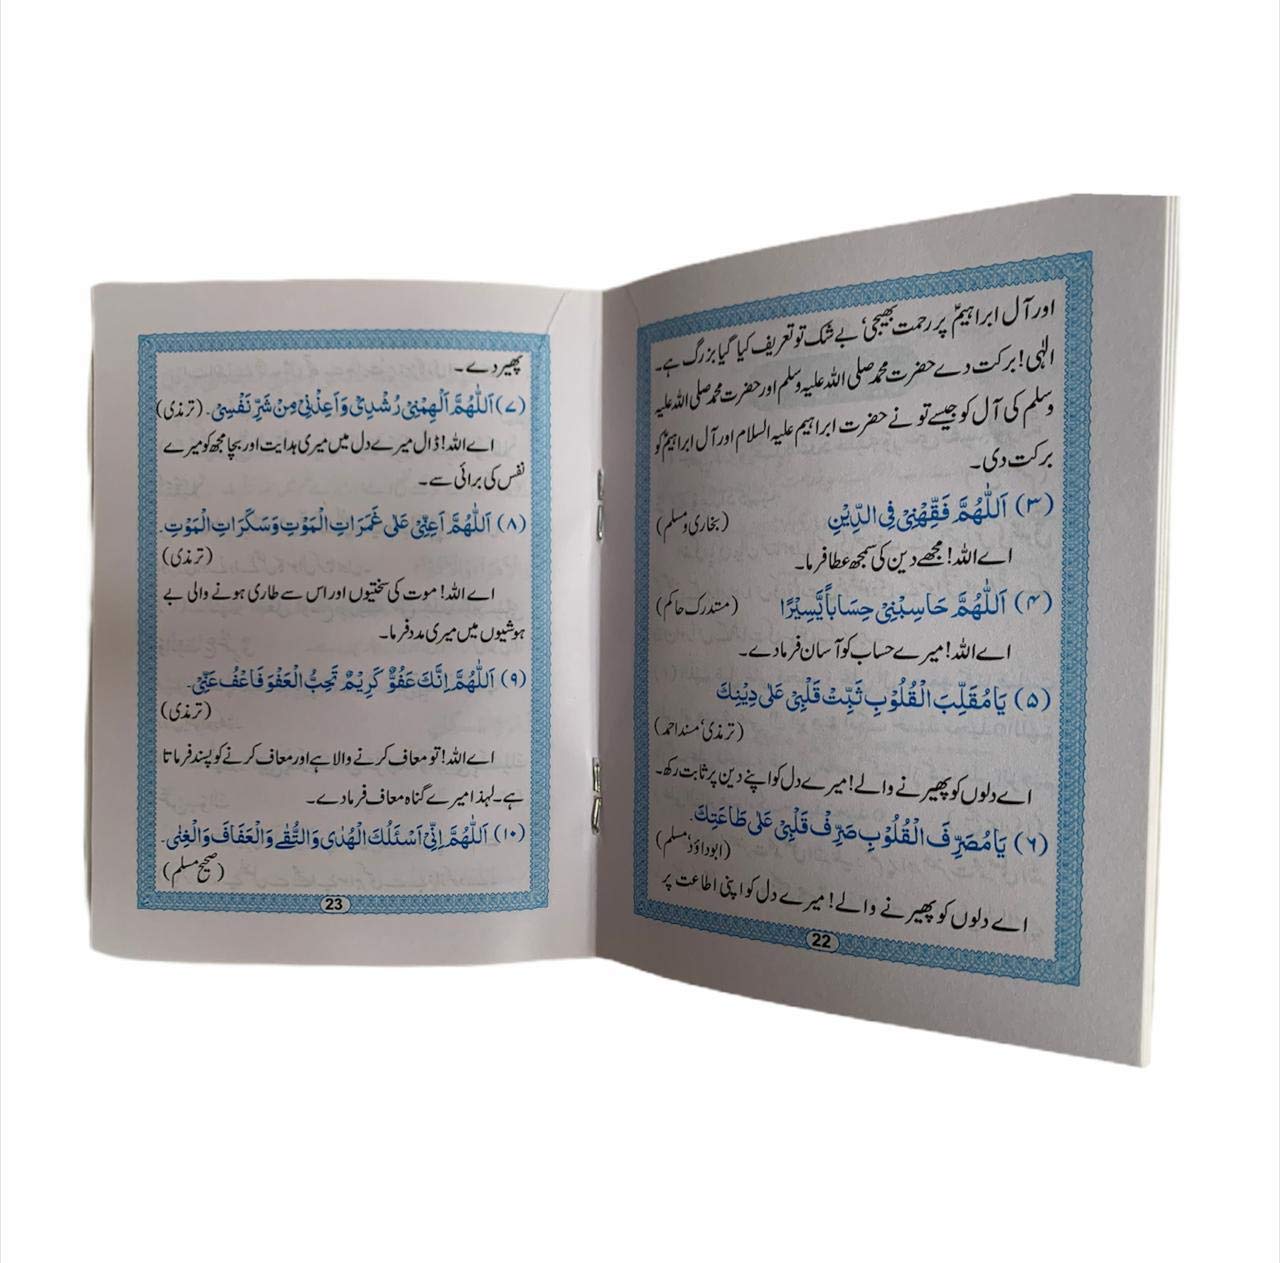 اور آل ابراہیمؑ پر رحمت بھیجی، بے شک تو تعریف کیا گیا بزرگ ہے۔
الٰہی! برکت دے حضرت محمد صلی اللہ علیہ وسلم اور حضرت محمد صلی اللہ علیہ
وسلم کی آل کو جیسے تو نے حضرت ابراہیم علیہ السلام اور آل ابراہیمؑ کو
برکت دی۔
(۳) اَللّٰهُمَّ فَقِّهْنِىْ فِى الدِّيْنِ (بخاری ومسلم)
اے اللہ! مجھے دین کی سمجھ عطا فرما۔
(۴) اَللّٰهُمَّ حَاسِبْنِىْ حِسَاباً يَّسِيْرًا (مستدرک حاکم)
اے اللہ! میرے حساب کو آسان فرمادے۔
(۵) يَا مُقَلِّبَ الْقُلُوْبِ ثَبِّتْ قَلْبِىْ عَلٰى دِيْنِكَ
(ترمذی، مسند احمد)
اے دلوں کو پھیرنے والے! میرے دل کو اپنے دین پر ثابت رکھ۔
(۶) يَا مُصَرِّفَ الْقُلُوْبِ صَرِّفْ قَلْبِىْ عَلٰى طَاعَتِكَ۔
(ابوداؤد، مسلم)
اے دلوں کو پھیرنے والے! میرے دل کو اپنی اطاعت پر
22
پھیر دے۔
(۷) اَللّٰهُمَّ اَلْهِمْنِىْ رُشْدِىْ وَاَعِذْنِىْ مِنْ شَرِّ نَفْسِىْ۔ (ترمذی)
اے اللہ! ڈال میرے دل میں میری ہدایت اور بچا مجھ کو میرے
نفس کی برائی سے۔
(۸) اَللّٰهُمَّ اَعِنِّىْ عَلٰى غَمَرَاتِ الْمَوْتِ وَسَكَرَاتِ الْمَوْتِ۔
(ترمذی)
اے اللہ! موت کی سختیوں اور اس سے طاری ہونے والی بے
ہوشیوں میں میری مدد فرما۔
(۹) اَللّٰهُمَّ اِنَّكَ عَفُوٌّ كَرِيْمٌ تُحِبُّ الْعَفْوَ فَاعْفُ عَنِّىْ۔
(ترمذی)
اے اللہ! تو معاف کرنے والا ہے اور معاف کرنے کو پسند فرماتا
ہے۔ لہٰذا میرے گناہ معاف فرمادے۔
(۱۰) اَللّٰهُمَّ اِنِّىْ اَسْئَلُكَ الْهُدٰى وَالتُّقٰى وَالْعَفَافَ وَالْغِنٰى۔
(صحیح مسلم)
23